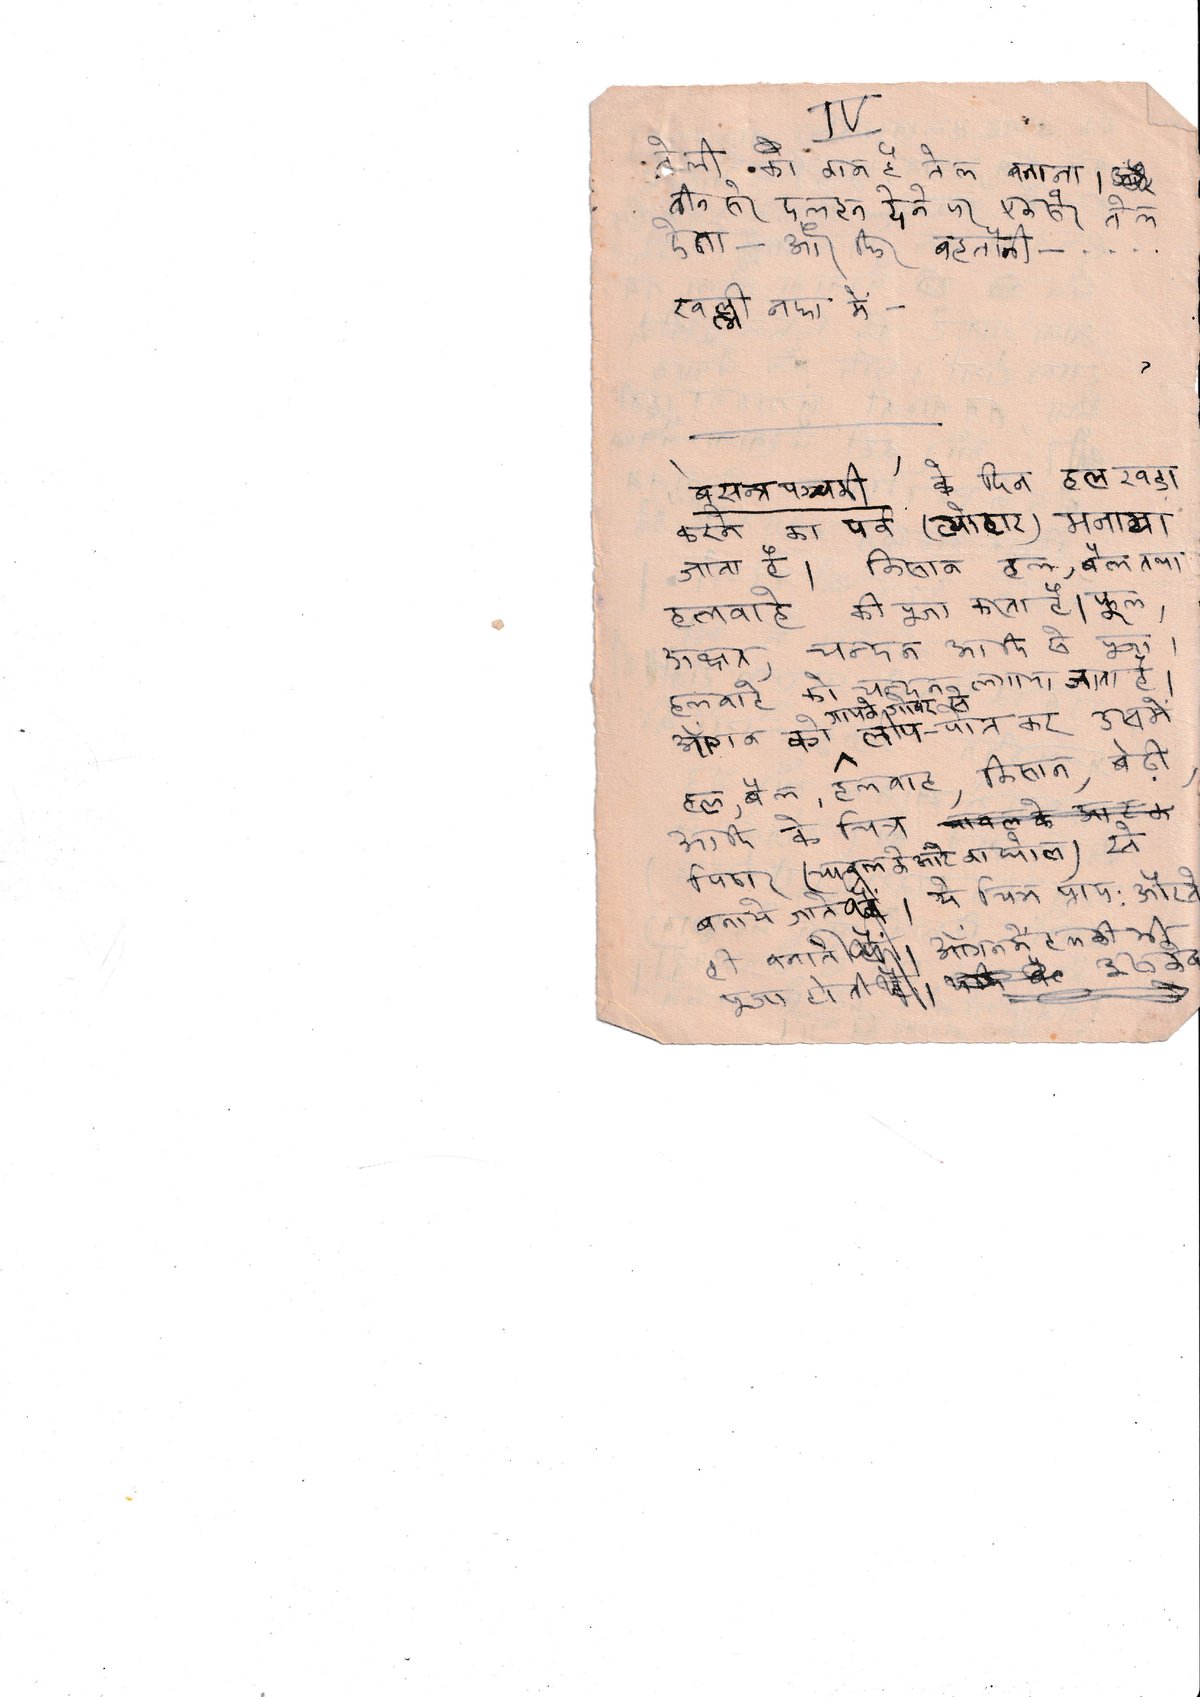 IV
तेली का काम है तेल बनाना।
तीन सेर दलहन देने पर एक सेर तेल
देना — और फिर बहतौनी — . . . .
खल्ली नफा में —
'बसन्त पञ्चमी' के दिन हल खड़ा
करने का पर्व (त्योहार) मनाया
जाता है। किसान हल, बैल तथा
हलवाहे की पूजा करता है। फूल,
अक्षत, चन्दन आदि से पूजा।
हलवाहे को चन्दन लगाया जाता है।
आंगन को गायके गोबर से लीप-पोत कर उसमें
हल, बैल, हलवाहे, किसान, बेढ़ी,
आदि के चित्र चावल के आटे के
पिठार (चावल के आटे का घोल) से
बनाये जाते हैं। ये चित्र प्राय: औरतें
ही बनाती हैं। आंगन में हल की भी
पूजा होती है।